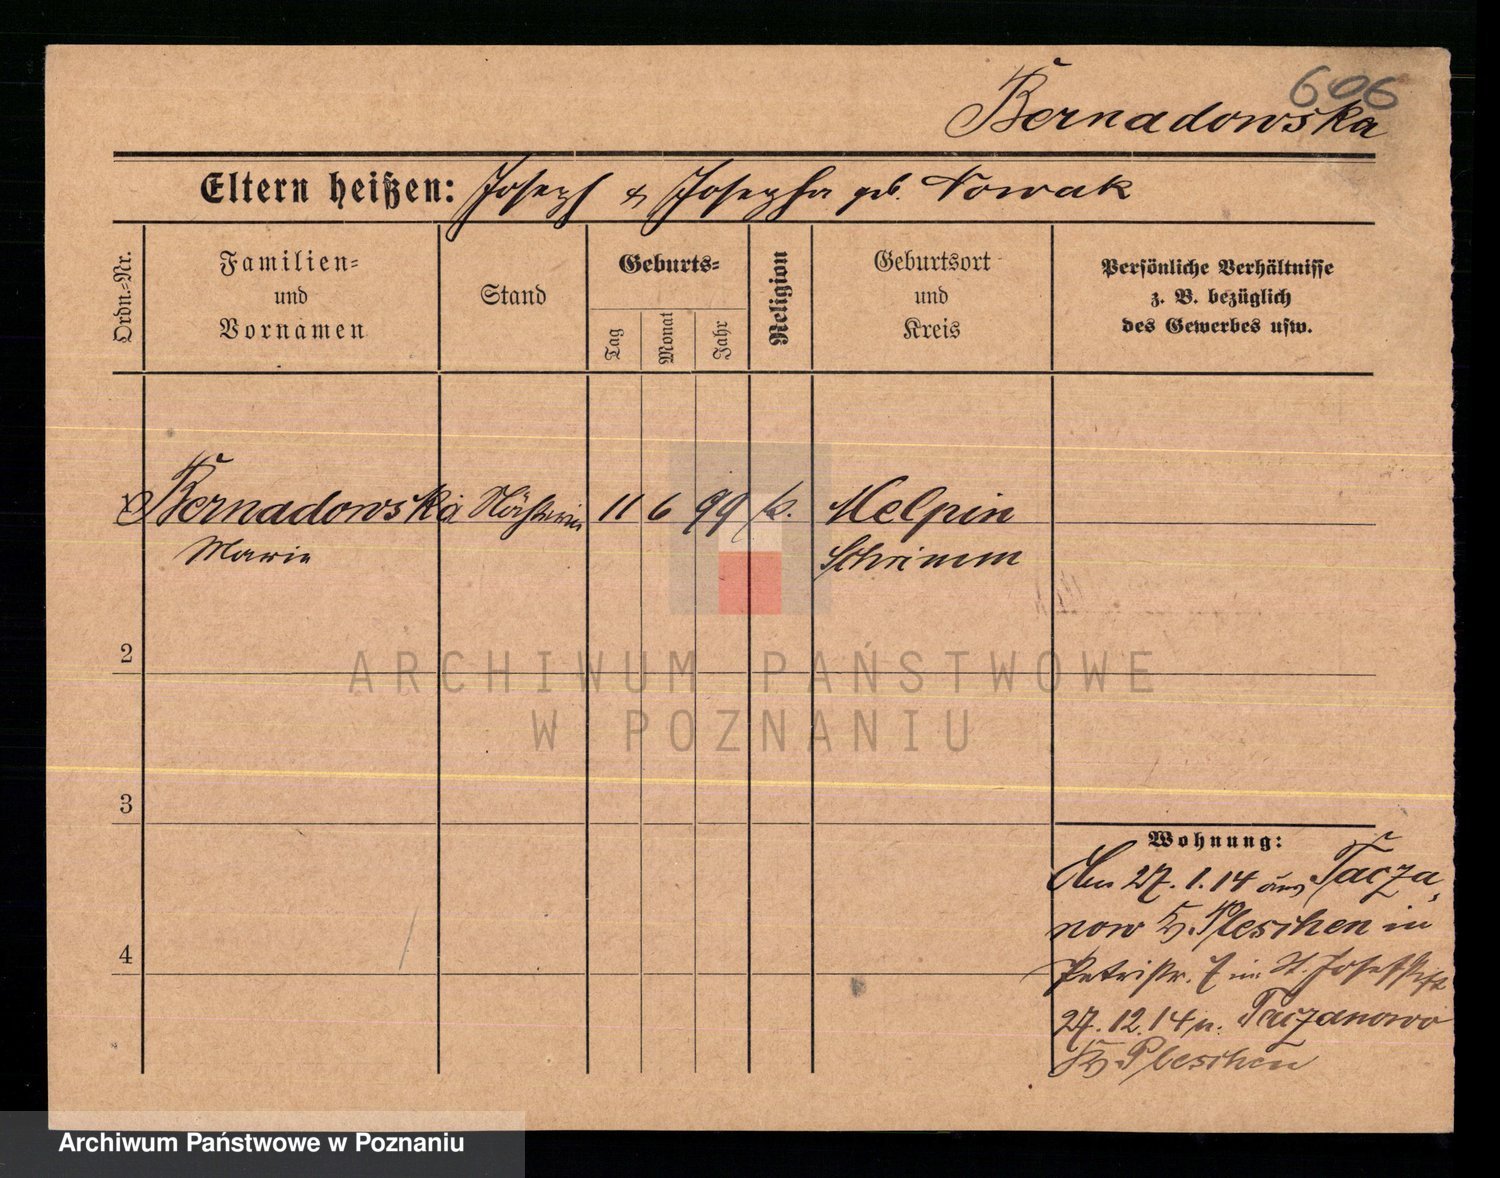 606
Bernadowska
Eltern heißen: Joseph & Josepha geb. Nowak
Ordn.-Nr.
Familien-
und
Vornamen
Stand
Geburts-
Tag
Monat
Jahr
Religion
Geburtsort
und
Kreis
Persönliche Verhältnisse
z. B. bezüglich
des Gewerbes usw.
Bernadowska Näherin 11 6 99 k. Melpin
Marie Schrimm
2
ARCHIWUM PAŃSTWOWE
W POZNANIU
3
Wohnung:
4
27. 1. 14 aus Tacza
now Kr. Pleschen in
Petristr. 7 im St. Josefstift
27. 12. 14 n. Taczanowo
Kr. Pleschen
Archiwum Państwowe w Poznaniu